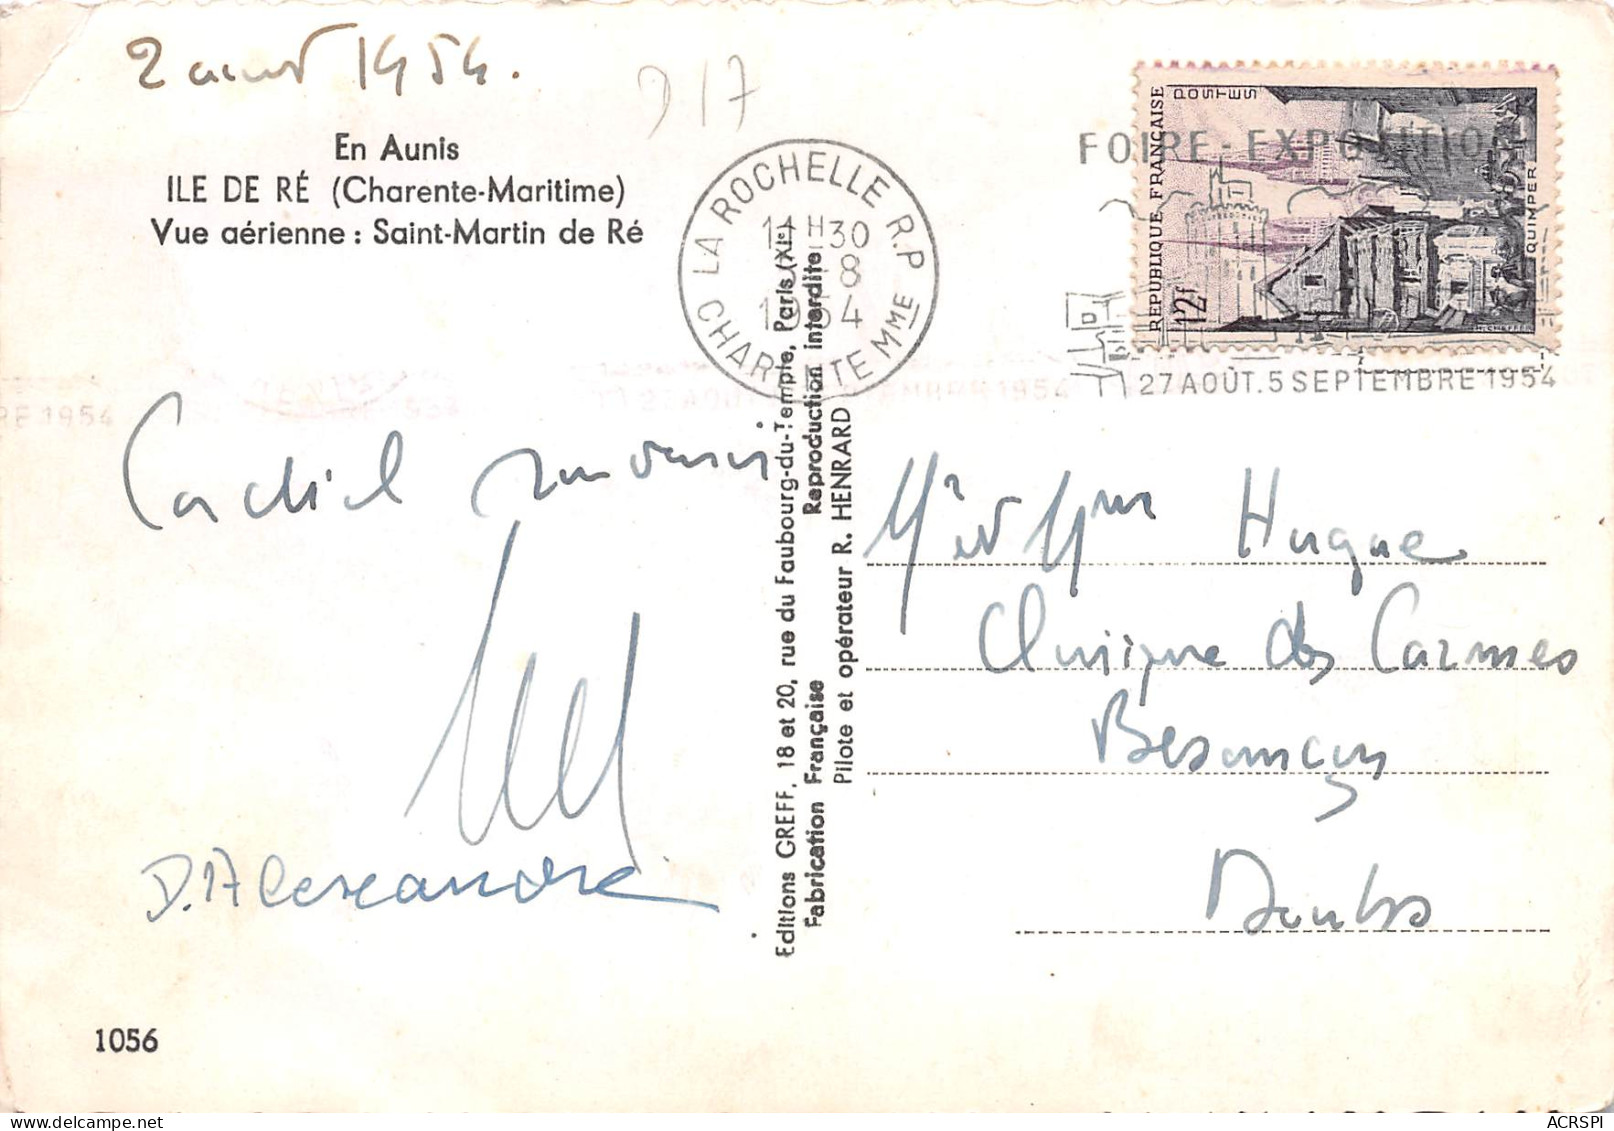 2 août 1954.
D 17
En Aunis
ILE DE RÉ (Charente-Maritime)
Vue aérienne : Saint-Martin de Ré
LA ROCHELLE R.P
14H30
8
1954
CHARENTE MME
FOIRE-EXPOSITIO
27 AOÛT. 5 SEPTEMBRE 1954
REPUBLIQUE FRANÇAISE
POSTES
12f
QUIMPER
RE 1954
Cordial souvenir
D. Alexandre
Editions GREFF, 18 et 20, rue du Faubourg-du-Temple, Paris (XIe)
Fabrication Française Reproduction interdite
Pilote et opérateur R. HENRARD
Mr et Mme Hugue
Clinique des Carmes
Besançon
Doubs
1056
ACRSPI